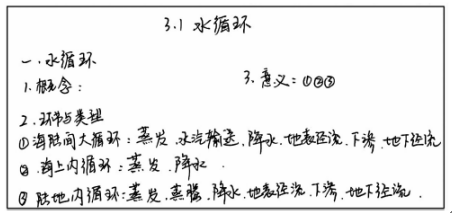 3.1 水循环
一.水循环
1.概念：
3.意义：①②③
2.环节与类型
①海陆间大循环：蒸发.水汽输送.降水.地表径流.下渗.地下径流
②海上内循环：蒸发.降水.
③陆地内循环：蒸发.蒸腾.降水.地表径流.下渗.地下径流.